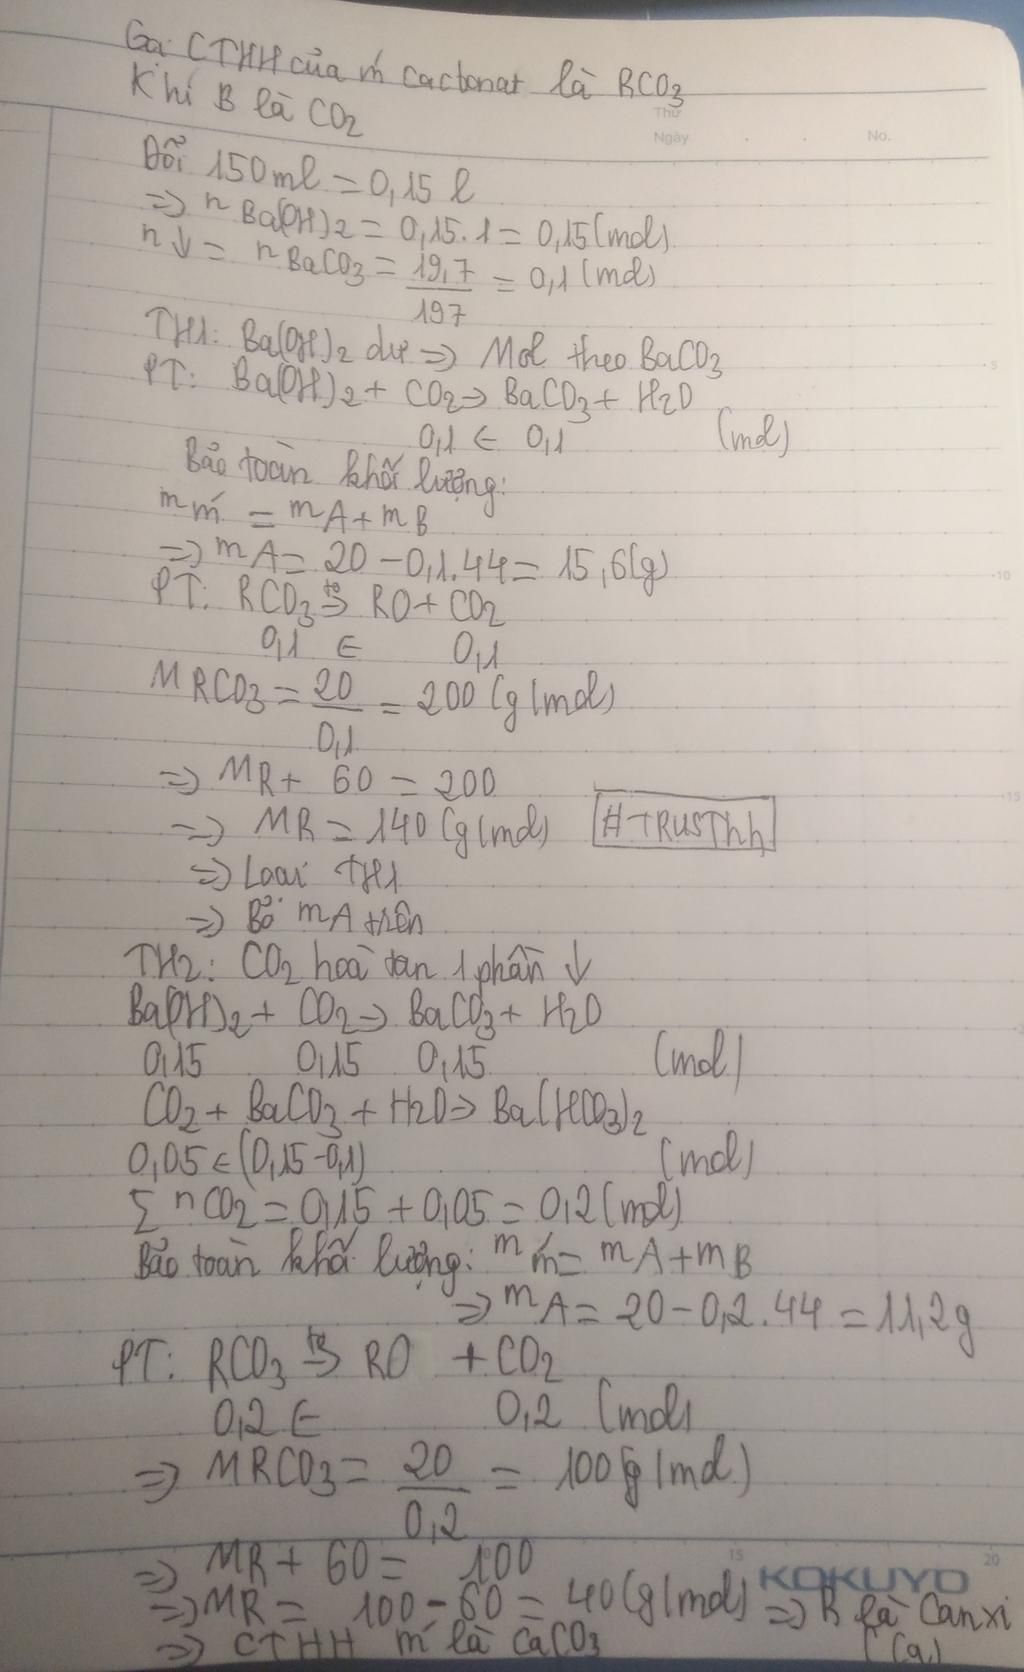 Gọi CTHH của ḿ cacbonat là RCO3
Khí B là CO2
Thứ
Ngày . . No.
Đổi 150ml = 0,15 l
=> n Ba(OH)2 = 0,15.1 = 0,15(mol)
n↓ = n BaCO3 = 19,7/197 = 0,1 (mol)
TH1: Ba(OH)2 dư => Mol theo BaCO3
PT: Ba(OH)2 + CO2 -> BaCO3 + H2O
0,1 ← 0,1 (mol)
Bảo toàn khối lượng:
m ḿ = mA + mB
=> mA = 20 - 0,1.44 = 15,6(g)
PT: RCO3 t°-> RO + CO2
0,1 ← 0,1
MRCO3 = 20/0,1 = 200 (g/mol)
=> MR + 60 = 200
=> MR = 140 (g/mol) #TRUSThh
=> Loại TH1
=> Bỏ mA trên
TH2: CO2 hoà tan 1 phần ↓
Ba(OH)2 + CO2 -> BaCO3 + H2O
0,15 0,15 0,15 (mol)
CO2 + BaCO3 + H2O -> Ba(HCO3)2
0,05 ← (0,15-0,1) (mol)
Σ nCO2 = 0,15 + 0,05 = 0,2 (mol)
Bảo toàn khối lượng: m ḿ = mA + mB
=> mA = 20 - 0,2.44 = 11,2g
PT: RCO3 t°-> RO + CO2
0,2 ← 0,2 (mol)
=> MRCO3 = 20/0,2 = 100(g/mol)
=> MR + 60 = 100
15 KOKUYO 20
=> MR = 100 - 60 = 40(g/mol) => R là Canxi
=> CTHH ḿ là CaCO3 (Ca)